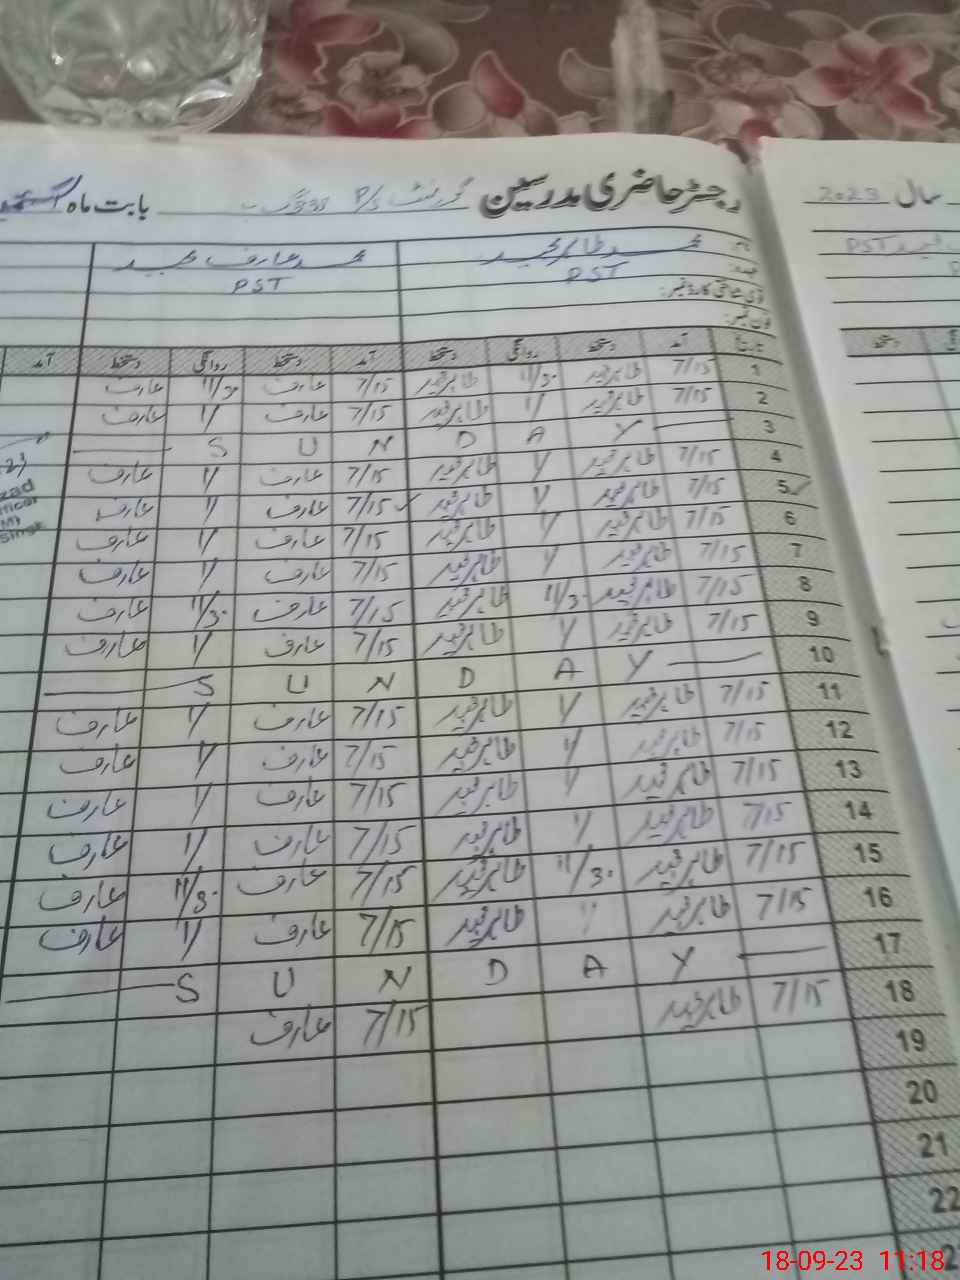 سال 2023
رجسٹر حاضری مدرسین گورنمنٹ P/S بابت ماہ
نام: محمد طاہر مجید محمد عارف مجید
عہدہ: PST PST PST
قومی شناختی کارڈ نمبر:
فون نمبر:
تاریخ آمد دستخط روانگی دستخط آمد دستخط روانگی دستخط آمد
1 7/15 طاہر مجید 11/30 طاہر مجید 7/15 عارف 11/30 عارف
2 7/15 طاہر مجید 〃 طاہر مجید 7/15 عارف 〃 عارف
3 S U N D A Y
4 7/15 طاہر مجید 〃 طاہر مجید 7/15 عارف 〃 عارف
5 7/15 طاہر مجید 〃 طاہر مجید 7/15 عارف 〃 عارف
6 7/15 طاہر مجید 〃 طاہر مجید 7/15 عارف 〃 عارف
7 7/15 طاہر مجید 〃 طاہر مجید 7/15 عارف 〃 عارف
8 7/15 طاہر مجید 11/30 طاہر مجید 7/15 عارف 11/30 عارف
9 7/15 طاہر مجید 〃 طاہر مجید 7/15 عارف 〃 عارف
10 S U N D A Y
11 7/15 طاہر مجید 〃 طاہر مجید 7/15 عارف 〃 عارف
12 7/15 طاہر مجید 〃 طاہر مجید 7/15 عارف 〃 عارف
13 7/15 طاہر مجید 〃 طاہر مجید 7/15 عارف 〃 عارف
14 7/15 طاہر مجید 〃 طاہر مجید 7/15 عارف 〃 عارف
15 7/15 طاہر مجید 11/30 طاہر مجید 7/15 عارف 11/30 عارف
16 7/15 طاہر مجید 〃 طاہر مجید 7/15 عارف 〃 عارف
17 S U N D A Y
18 7/15 طاہر مجید 7/15 عارف
19
20
21
22
18-09-23 11:18